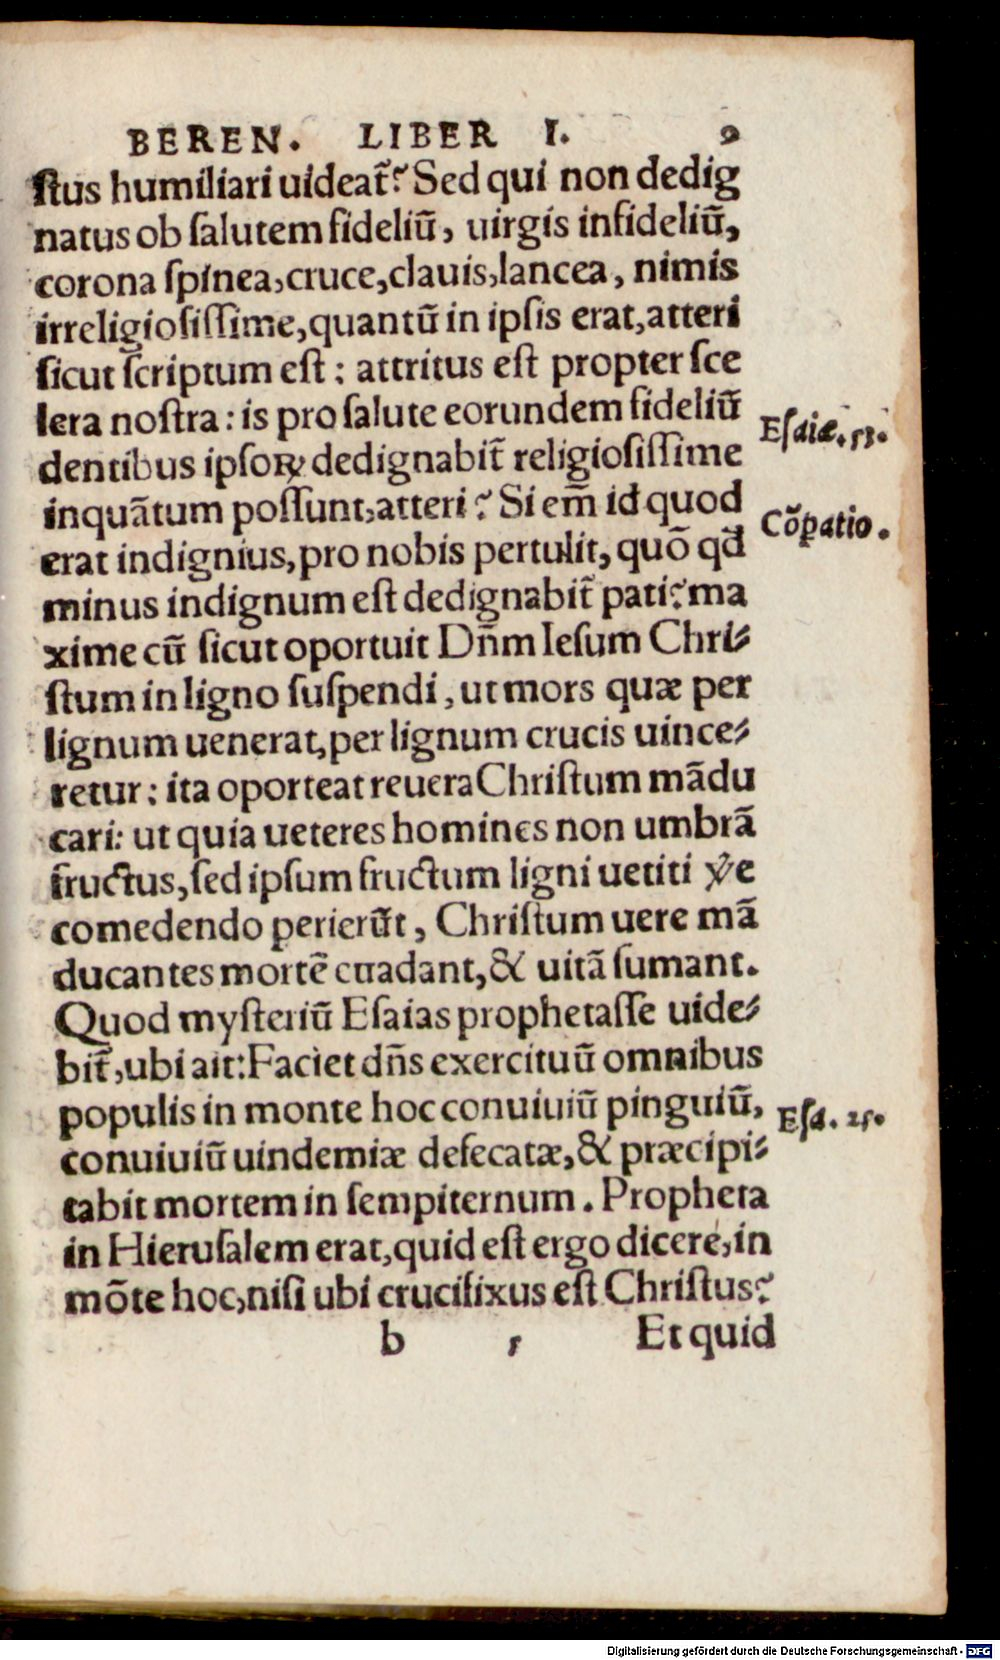 BEREN. LIBER I. 9
ſtus humiliari uideat̃? Sed qui non dedig
natus ob ſalutem fideliũ, uirgis infideliũ,
corona ſpinea, cruce, clauis, lancea, nimis
irreligioſiſſime, quantũ in ipſis erat, atteri
ſicut ſcriptum eſt: attritus eſt propter ſce
lera noſtra: is pro ſalute eorundem fideliũ
Eſaiæ. 53.
dentibus ipſoꝝ dedignabit̃ religioſiſſime
inquãtum poſſunt, atteri? Si em̃ id quod
Cõꝑatio.
erat indignius, pro nobis pertulit, quõ qd̃
minus indignum eſt dedignabit̃ pati? ma
xime cũ ſicut oportuit Dñm Ieſum Chri⸗
ſtum in ligno ſuſpendi, ut mors quæ per
lignum uenerat, per lignum crucis uince⸗
retur: ita oporteat reuera Chriſtum mãdu
cari: ut quia ueteres homines non umbrã
fructus, ſed ipſum fructum ligni uetiti ꝟe
comedendo perierũt, Chriſtum uere mã
ducantes mortẽ euadant, & uitã ſumant.
Quod myſteriũ Eſaias prophetaſſe uide⸗
bit̃, ubi ait: Faciet dñs exercituũ omnibus
populis in monte hoc conuiuiũ pinguiũ,
Eſa. 25.
conuiuiũ uindemiæ defecatæ, & præcipi⸗
tabit mortem in ſempiternum. Propheta
in Hieruſalem erat, quid eſt ergo dicere, in
mõte hoc, niſi ubi crucifixus eſt Chriſtus?
b 5 Et quid
Digitalisierung gefördert durch die Deutsche Forschungsgemeinschaft - DFG